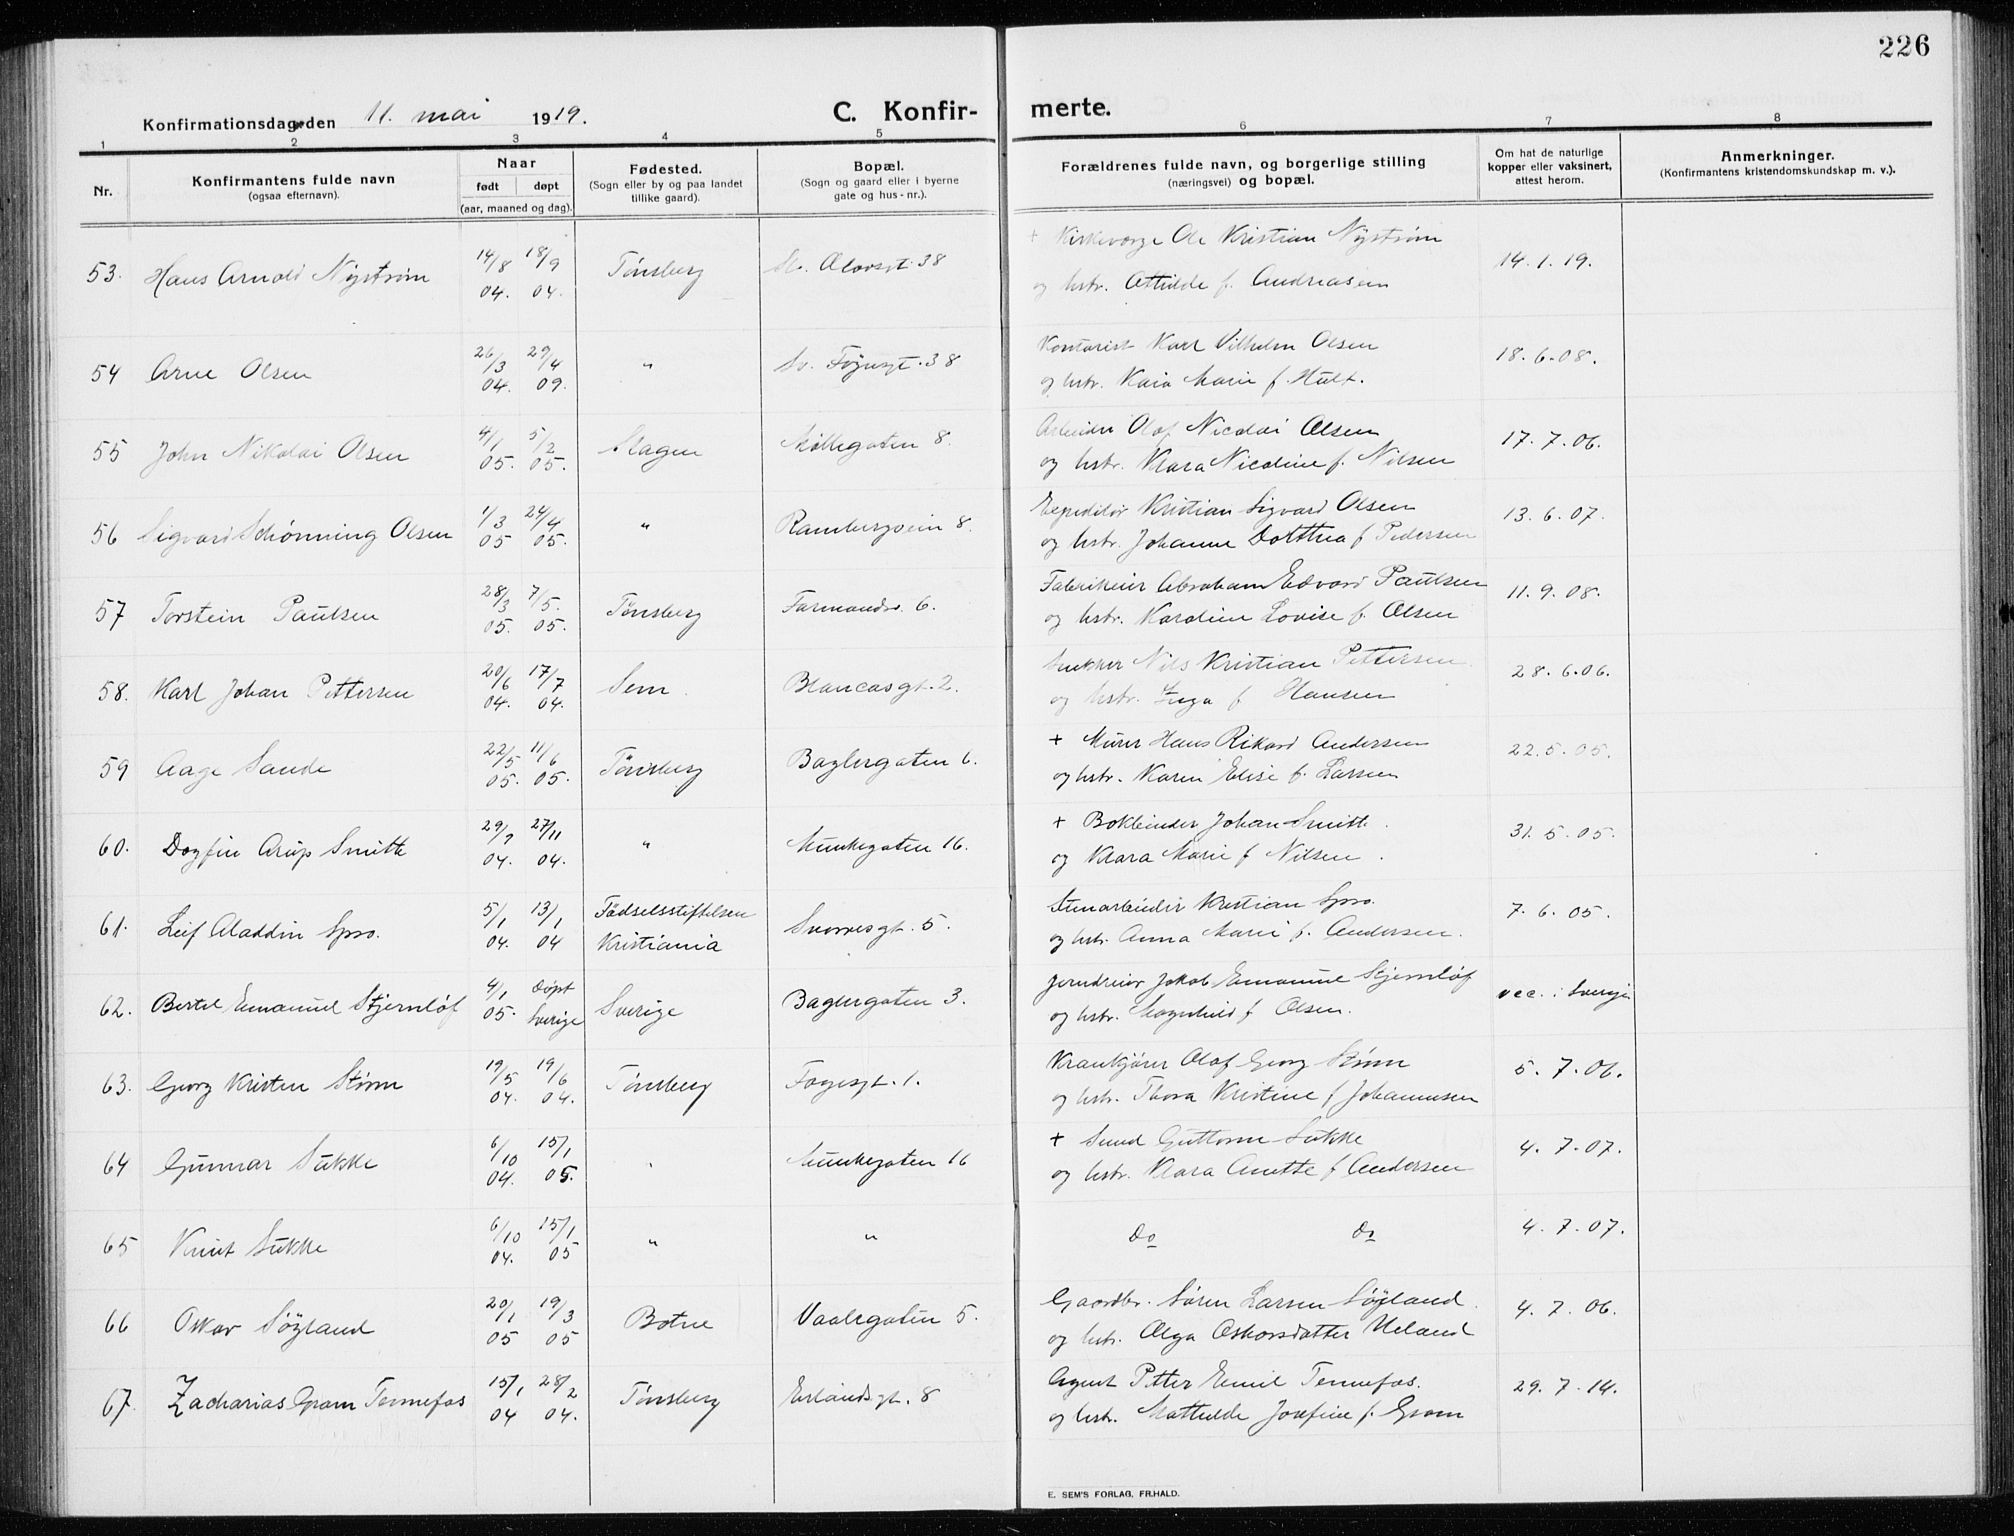 226
Konfirmationsdagen den 11. mai 1919.
C. Konfir-
merte.
1 2 3 4 5 6 7 8
Nr.
Konfirmantens fulde navn
(ogsaa efternavn).
Naar
født døpt
(aar, maaned og dag).
Fødested.
(Sogn eller by og paa landet
tillike gaard).
Bopæl.
(Sogn og gaard eller i byerne
gate og hus-nr.).
Forældrenes fulde navn, og borgerlige stilling
(næringsvei) og bopæl.
Om hat de naturlige
kopper eller vaksinert,
attest herom.
Anmerkninger.
(Konfirmantens kristendomskundskap m. v.).
53. Hans Arnold Nystrøm 14/8 04. 18/9 04. Tønsberg St. Olavsgt. 38
+ Kirkeværge Ole Kristian Nystrøm
og hstr. f. Andreasen
14.1.19.
54 Arne Olsen 26/3 04. 29/4 09. " 38
Kontorist Karl Vilhelm Olsen
og hstr. Kaia Marie f. Hult.
18.6.08.
55 John Nikolai Olsen 4/1 05. 5/2 05. Slagen Møllegaten 8.
Arbeider Olaf Nicolai Olsen
og hstr. Klara Nicoline f. Nilsen
17.7.06.
56 Sigvard Schønning Olsen 1/3 05 24/4 05. " Rambergveien 8.
Expeditør Kristian Sigvard Olsen
og hstr. Johanne Dorthea f Pedersen
13.6.07.
57 Torstein Paulsen 28/3 05. 7/5. 05. Tønsberg Farmandsv. 6.
Fabrikeier Abraham Edvard Paulsen
og hstr. Karoline Lovise f. Olsen
11.9.08.
58. Karl Johan Pettersen 20/6 04. 17/7 04. Sem. Blancasgt. 2.
Snekker Nils Kristian Pettersen.
og hstr. Inga f Hansen
28.6.06.
59 Aage Sande 22/5 05. 11/6 05. Tønsberg Baglergaten 6.
+ Murer Hans Rikard Andersen
og hstr. Karen Elise f. Larsen
22.5.05.
60. Dagfin Arup Smith 29/9 04. 27/11 04. " Munkegaten 16.
+ Bokbinder Johan Smith.
og Klara Marie f Nilsen.
31.5.05.
61. Leif Aladdin Spro. 5/1 04. 13/1 04 Fødselsstiftelsen
Kristiania Snorresgt. 5.
Stenarbeider Kristian Spro.
og hstr. Anna Marie f. Andersen.
7.6.05.
62. Bertel Emanuel Stjernløf 4/1 05. døpt Sverige Sverige Baglergaten 3.
Jerndreier Jakob Emanuel Stjernløf
og hstr. Magnhild f Olsen.
vac. i Sverige
63. Georg Kristen Størm 19/5 04. 19/6 04. Tønsberg 1.
Krankjører Olaf Georg Størm
og hstr. Thora Kristine f Johannesen
5.7.06.
64 Gunnar Sukke 6/10 04. 15/1 05. " Munkegaten 16
+ Smed Guttorm Sukke
og hstr. Klara Anette f Andersen
4.7.07.
65 Knut Sukke 6/10 04. 15/1 05 " "
Do Do
4.7.07.
66 Oskar Søyland 20/1 05 19/3 05 Botne Vaalegaten 5.
Gaardbr. Søren Larsen Søyland.
og hstr. Olga Oskarsdatter Ueland
4.7.06.
67. Zacharias Gram Tennefos 15/1 04 28/2 04. Tønsberg Erlandsgt. 8
Agent Petter Emil Tennefos.
og hstr. Mathilde Josefine f. Gram
29.7.14.
E. SEM'S FORLAG, FR.HALD.